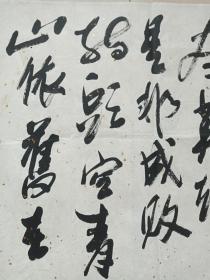 英雄
是非成败
转头空青
山依旧在